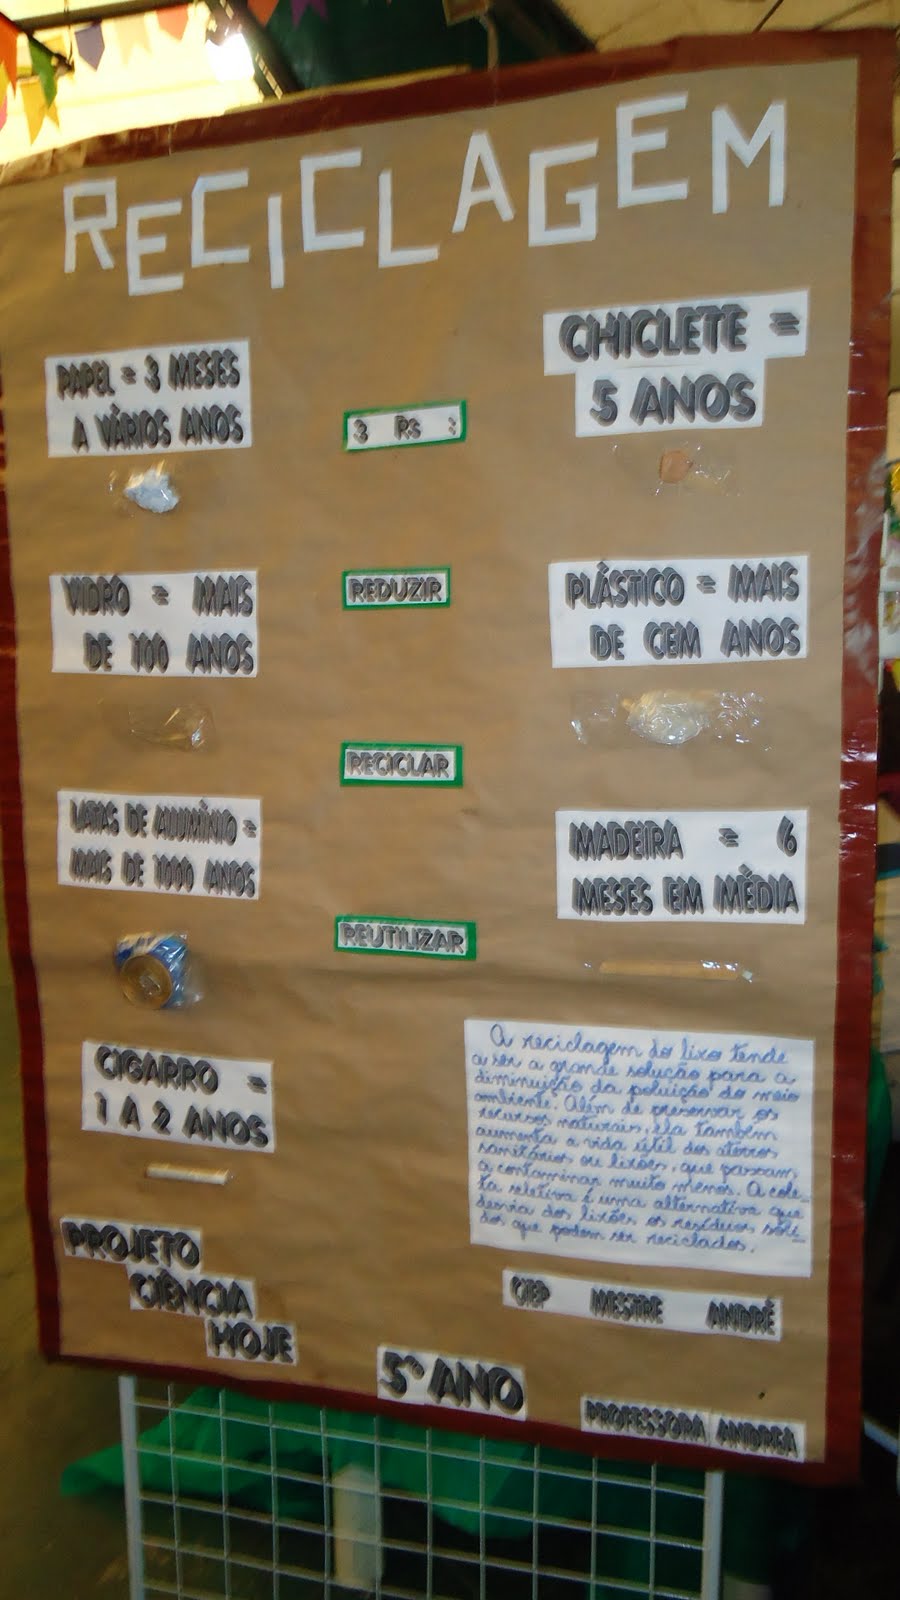 RECICLAGEM
PAPEL = 3 MESES
A VÁRIOS ANOS
VIDRO = MAIS
DE 100 ANOS
LATAS DE ALUMÍNIO =
MAIS DE 1000 ANOS
CIGARRO =
1 A 2 ANOS
3 Rs :
REDUZIR
RECICLAR
REUTILIZAR
CHICLETE =
5 ANOS
PLÁSTICO = MAIS
DE CEM ANOS
MADEIRA = 6
MESES EM MÉDIA
A reciclagem do lixo tende
a ser a grande solução para a
diminuição da poluição do meio
ambiente. Além de preservar os
recursos naturais, ela também
aumenta a vida útil dos aterros
sanitários ou lixões, que passam
a contaminar muito menos. A cole-
ta seletiva é uma alternativa que
desvia dos lixões os resíduos sóli-
dos que podem ser reciclados.
PROJETO
CIÊNCIA
HOJE
CIEP MESTRE ANDRÉ
5º ANO
PROFESSORA ANDREA